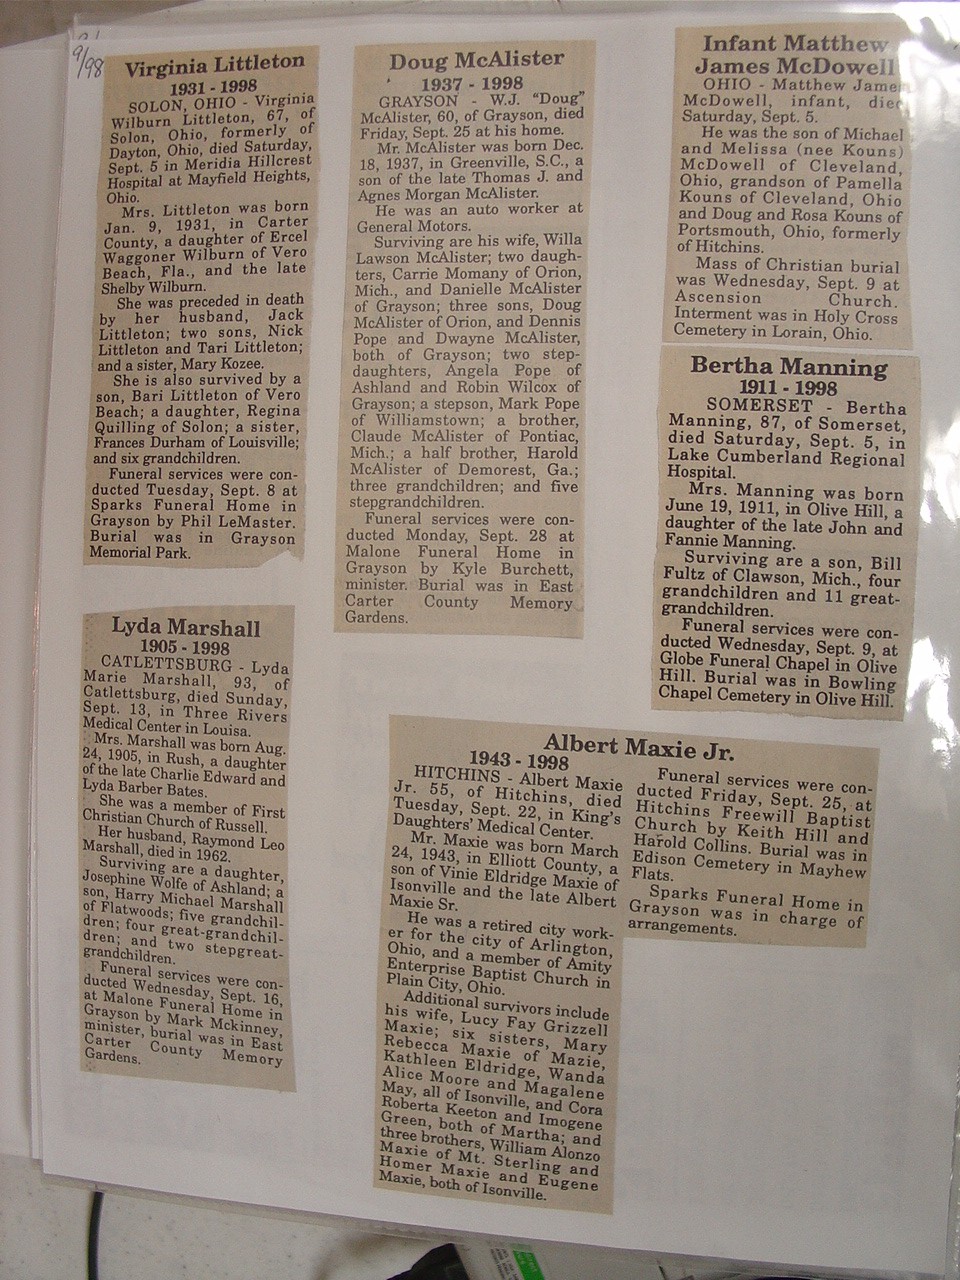 9/98
Virginia Littleton
1931 - 1998
SOLON, OHIO - Virginia
Wilburn Littleton, 67, of
Solon, Ohio, formerly of
Dayton, Ohio, died Saturday,
Sept. 5 in Meridia Hillcrest
Hospital at Mayfield Heights,
Ohio.
Mrs. Littleton was born
Jan. 9, 1931, in Carter
County, a daughter of Ercel
Waggoner Wilburn of Vero
Beach, Fla., and the late
Shelby Wilburn.
She was preceded in death
by her husband, Jack
Littleton; two sons, Nick
Littleton and Tari Littleton;
and a sister, Mary Kozee.
She is also survived by a
son, Bari Littleton of Vero
Beach; a daughter, Regina
Quilling of Solon; a sister,
Frances Durham of Louisville;
and six grandchildren.
Funeral services were con-
ducted Tuesday, Sept. 8 at
Sparks Funeral Home in
Grayson by Phil LeMaster.
Burial was in Grayson
Memorial Park.
Lyda Marshall
1905 - 1998
CATLETTSBURG - Lyda
Marie Marshall, 93, of
Catlettsburg, died Sunday,
Sept. 13, in Three Rivers
Medical Center in Louisa.
Mrs. Marshall was born Aug.
24, 1905, in Rush, a daughter
of the late Charlie Edward and
Lyda Barber Bates.
She was a member of First
Christian Church of Russell.
Her husband, Raymond Leo
Marshall, died in 1962.
Surviving are a daughter,
Josephine Wolfe of Ashland; a
son, Harry Michael Marshall
of Flatwoods; five grandchil-
dren; four great-grandchil-
dren; and two stepgreat-
grandchildren.
Funeral services were con-
ducted Wednesday, Sept. 16,
at Malone Funeral Home in
Grayson by Mark Mckinney,
minister, burial was in East
Carter County Memory
Gardens.
Doug McAlister
1937 - 1998
GRAYSON - W.J. "Doug"
McAlister, 60, of Grayson, died
Friday, Sept. 25 at his home.
Mr. McAlister was born Dec.
18, 1937, in Greenville, S.C., a
son of the late Thomas J. and
Agnes Morgan McAlister.
He was an auto worker at
General Motors.
Surviving are his wife, Willa
Lawson McAlister; two daugh-
ters, Carrie Momany of Orion,
Mich., and Danielle McAlister
of Grayson; three sons, Doug
McAlister of Orion, and Dennis
Pope and Dwayne McAlister,
both of Grayson; two step-
daughters, Angela Pope of
Ashland and Robin Wilcox of
Grayson; a stepson, Mark Pope
of Williamstown; a brother,
Claude McAlister of Pontiac,
Mich.; a half brother, Harold
McAlister of Demorest, Ga.;
three grandchildren; and five
stepgrandchildren.
Funeral services were con-
ducted Monday, Sept. 28 at
Malone Funeral Home in
Grayson by Kyle Burchett,
minister. Burial was in East
Carter County Memory
Gardens.
Infant Matthew
James McDowell
OHIO - Matthew Jame
McDowell, infant, died
Saturday, Sept. 5.
He was the son of Michael
and Melissa (nee Kouns)
McDowell of Cleveland,
Ohio, grandson of Pamella
Kouns of Cleveland, Ohio
and Doug and Rosa Kouns of
Portsmouth, Ohio, formerly
of Hitchins.
Mass of Christian burial
was Wednesday, Sept. 9 at
Ascension Church.
Interment was in Holy Cross
Cemetery in Lorain, Ohio.
Bertha Manning
1911 - 1998
SOMERSET - Bertha
Manning, 87, of Somerset,
died Saturday, Sept. 5, in
Lake Cumberland Regional
Hospital.
Mrs. Manning was born
June 19, 1911, in Olive Hill, a
daughter of the late John and
Fannie Manning.
Surviving are a son, Bill
Fultz of Clawson, Mich., four
grandchildren and 11 great-
grandchildren.
Funeral services were con-
ducted Wednesday, Sept. 9, at
Globe Funeral Chapel in Olive
Hill. Burial was in Bowling
Chapel Cemetery in Olive Hill.
Albert Maxie Jr.
1943 - 1998
HITCHINS - Albert Maxie
Jr. 55, of Hitchins, died
Tuesday, Sept. 22, in King's
Daughters' Medical Center.
Mr. Maxie was born March
24, 1943, in Elliott County, a
son of Vinie Eldridge Maxie of
Isonville and the late Albert
Maxie Sr.
He was a retired city work-
er for the city of Arlington,
Ohio, and a member of Amity
Enterprise Baptist Church in
Plain City, Ohio.
Additional survivors include
his wife, Lucy Fay Grizzell
Maxie; six sisters, Mary
Rebecca Maxie of Mazie,
Kathleen Eldridge, Wanda
Alice Moore and Magalene
May, all of Isonville, and Cora
Roberta Keeton and Imogene
Green, both of Martha; and
three brothers, William Alonzo
Maxie of Mt. Sterling and
Homer Maxie and Eugene
Maxie, both of Isonville.
Funeral services were con-
ducted Friday, Sept. 25, at
Hitchins Freewill Baptist
Church by Keith Hill and
Harold Collins. Burial was in
Edison Cemetery in Mayhew
Flats.
Sparks Funeral Home in
Grayson was in charge of
arrangements.